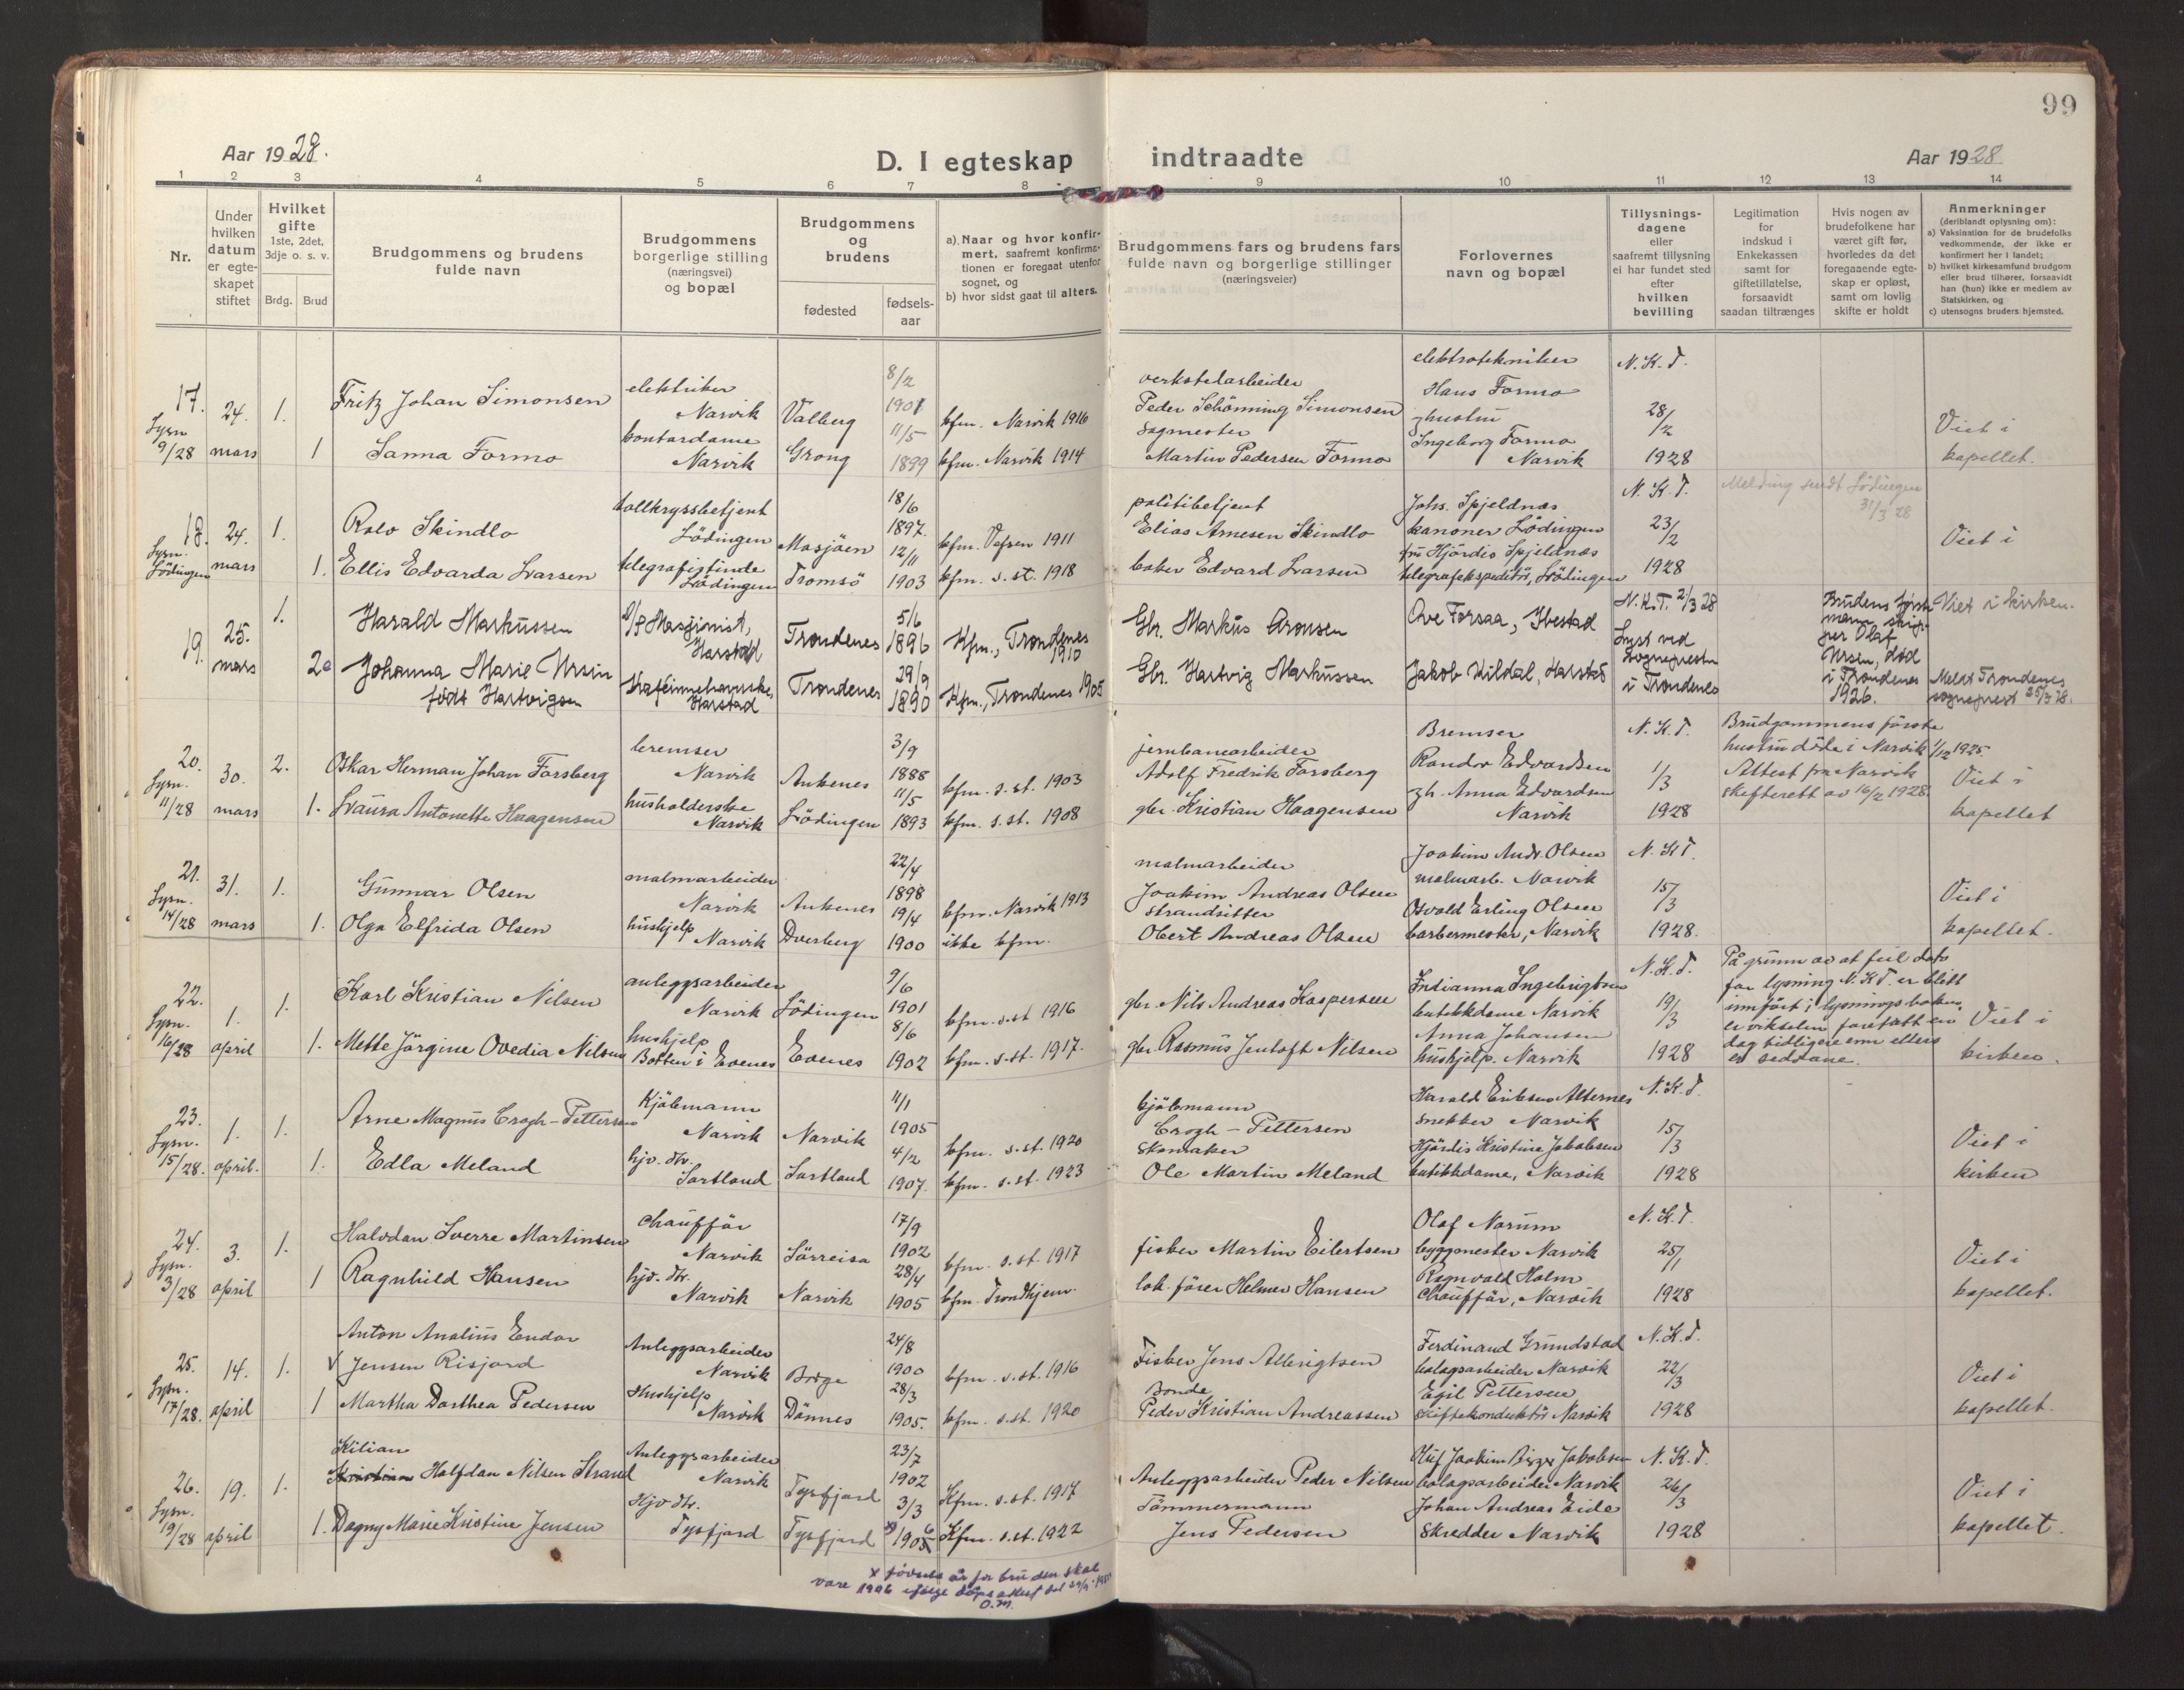 99
Aar 1928.
D. I egteskap indtraadte
Aar 1928
1 2 3 4 5 6 7 8 9 10 11 12 13 14
Nr.
Under hvilken datum er egteskapet stiftet
Hvilket gifte 1ste, 2det, 3dje o. s. v.
Brdg. Brud
Brudgommens og brudens fulde navn
Brudgommens borgerlige stilling (næringsvei) og bopæl
Brudgommens og brudens
fødested
fødsels-aar
a) Naar og hvor konfirmert, saafremt konfirmationen er foregaat utenfor sognet, og
b) hvor sidst gaat til alters.
Brudgommens fars og brudens fars fulde navn og borgerlige stillinger (næringsveier)
Forlovernes navn og bopæl
Tillysningsdagene eller saafremt tillysning ei har fundet sted efter hvilken bevilling
Legitimation for indskud i Enkekassen samt for giftetillatelse, forsaavidt saadan tiltrænges
Hvis nogen av brudefolkene har været gift før, hvorledes da det foregaaende egteskap er opløst, samt om lovlig skifte er holdt
Anmerkninger (deriblandt oplysning om):
a) Vaksination for de brudefolks vedkommende, der ikke er konfirmert her i landet;
b) hvilket kirkesamfund brudgom eller brud tilhører, forsaavidt han (hun) ikke er medlem av Statskirken, og
c) utensogns bruders hjemsted.
17. Lysn. 9/28
24. mars
1. Fritz Johan Simonsen elektriker Narvik Valberg 8/2 1901 kfm. Narvik 1916
1 Sanna Formo kontordame Narvik Grong 11/5 1899 kfm. Narvik 1914
verkstedarbeider Peder Schönning Simonsen
Sagmester Martin Pedersen Formo
elektrotekniker Hans Formo
hustru Ingeborg Formo Narvik
N. K. T. 28/2 1928
Viet i kapellet.
18. Lysn. Lödingen
24. mars
1. Rolv Skindlo tollkryssbetjent Lödingen Mosjöen 18/6 1897. kfm. Vefsen 1911
1. Ellis Edvarda Larsen telegrafistinde Lödingen Tromsö 12/11 1903 kfm. s. st. 1918
politibetjent Elias Arnesen Skindlo
baker Edvard Larsen
Johs. Spjeldnæs kanoner Lödingen
fru Hjördis Spjeldnæs telegrafekspeditör, Lödingen
N. K. T. 23/2 1928
Melding sendt Lödingen 31/3 28
Viet i
19.
25. mars
1. Harald Markussen Masjinist, Harstad Trondenes 5/6 1896 Kfm., Trondenes 1910
2 Johanna Marie Ursin født Hartvigsen Kafeinnehaverske, Harstad Trondenes 29/9 1890 Kfm., Trondenes 1905
Gbr. Markus Aronsen
Gbr. Hartvig Markussen
Ove Forsaa, Ibestad
Jakob Kildal, Harstad
N. K. T. 2/3 28 Lyst ved Sognepresten i Trondenes
Brudens første mann, skipper Olaf Ursin, død i Trondenes 1926.
Viet i kirken.
Meldt Trondenes sogneprest 25/3 28.
20. Lysn. 11/28
30. mars
2. Oskar Herman Johan Forsberg bremser Narvik Ankenes 3/9 1888 kfm. s. st. 1903
1. Laura Antonette Haagensen husholderske Narvik Lödingen 11/5 1893 kfm. s. st. 1908
jernbanearbeider Adolf Fredrik Forsberg
gbr. Kristian Haagensen
Bremser Randor Edvardsen
gh. Anna Edvardsen Narvik
N. K. T. 1/3 1928
Brudgommens förste hustru döde i Narvik 1/12 1925. Attest fra Narvik skifterett av 16/2 1928.
Viet i kapellet
21. Lysn. 14/28
31. mars
1. Gunnar Olsen malmarbeider Narvik Ankenes 22/4 1898 kfm. Narvik 1913
1. Olga Elfrida Olsen hushjelp Narvik Dverberg 19/4 1900 ikke kfm.
malmarbeider Joakim Andreas Olsen
strandsitter Obert Andreas Olsen
Joakim Andr. Olsen malmarb. Narvik
Osvald Erling Olsen barbermester, Narvik
N. K. T. 15/3 1928.
Viet i kapellet.
22. Lysn. 16/28
1. april
1. Karl Kristian Nilsen anleggsarbeider Narvik Lödingen 9/6 1901 kfm. s. st 1916
1. Mette Jörgine Ovedia Nilsen hushjelp Botten i Evenes Evenes 8/6 1902 kfm. s. st. 1917.
gbr. Nils Andreas Kaspersen
gbr. Rasmus Jentoft Nilsen
Indianna Ingebrigtsen butikkdame Narvik
Anna Johansen hushjelp. Narvik
N. K. T. 19/3 1928
På grunn av at feil dato for lysning N. K. T. er blitt innført i lysningsboken, er vikselen foretatt en dag tidligere enn ellers er sedvane.
Viet i kirken.
23. Lysn. 15/28.
1. april.
1. Arne Magnus Crogh-Pettersen Kjöbmann Narvik Narvik 11/1 1905 kfm. s. st. 1920
1. Edla Meland hjv. dtr. Sortland Sortland 4/2 1907. kfm. s. st. 1923
kjöbmann Crogh-Pettersen
Skomaker Ole Martin Meland
Harald Eriksen Alternes snekker Narvik
Hjördis Kristine Jakobsen butikkdame, Narvik
N. K. T. 15/3 1928
Viet i kirken
24. Lysn. 3/28
3. april
1. Halvdan Sverre Martinsen Chaufför Narvik Sörreisa 17/9 1902 kfm. s. st. 1917
1 Ragnhild Hansen hjv. dtr. Narvik Narvik 28/4 1905 kfm. Trondhjem.
fisker Martin Eilertsen
lok. fører Helmer Hansen
Olaf Norum byggmester Narvik
Ragnvald Holm Chaufför, Narvik
N. K. T. 25/1 1928
Viet i kapellet.
25. Lysn. 17/28.
14. april
1. Anton Analius Endor Jensen Risjord Anleggsarbeider Narvik Borge 24/8 1900 kfm. s. st. 1916
1 Martha Dorthea Pedersen Hushjelp Narvik Dönnes 28/3 1905. kfm. s. st. 1920
Fisker Jens Albrigtsen
Bonde Peder Kristian Andreassen
Ferdinand Grundstad bolagsarbeider Narvik
Egil Pettersen skiftekonduktör Narvik
N. K. T. 22/3 1928
Viet i kapellet.
26. Lysn. 19/28
19. april
1. Kilian Kristian Halfdan Nilsen Strand Anleggsarbeider Narvik Tysfjord 23/7 1902 Kfm. s. st. 1917
1. Dagny Marie Kristine Jensen Hjv dtr. Tysfjord Tysfjord 3/3 x 1905 6 Kfm. s. st. 1922
Anleggsarbeider Peder Nilsen
Tömmermann Jens Pedersen
Joakim Birger Jakobsen bolagsarbeider Narvik
Johan Andreas Eide Skredder Narvik
N. K. T. 26/3 1928
Viet i kapellet.
x fødsels år for bruden skal være 1906 ifølge dåpsattest
O. M.